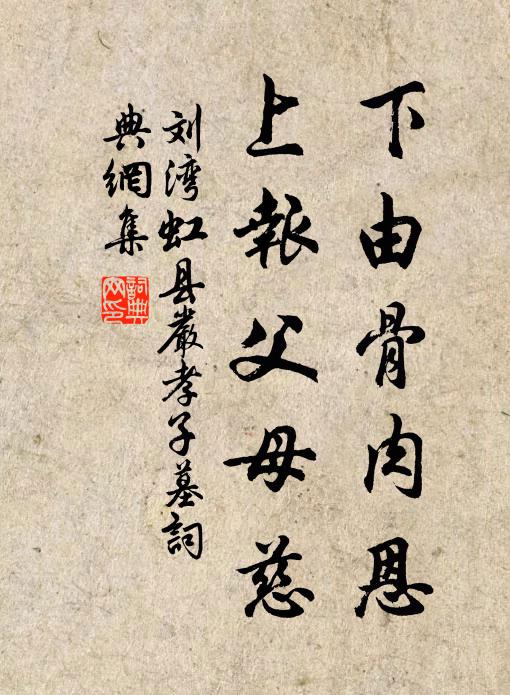 下由骨肉恩
上報父母慈
刘湾虹县嚴孝子墓詞
典網集
詞典
网印